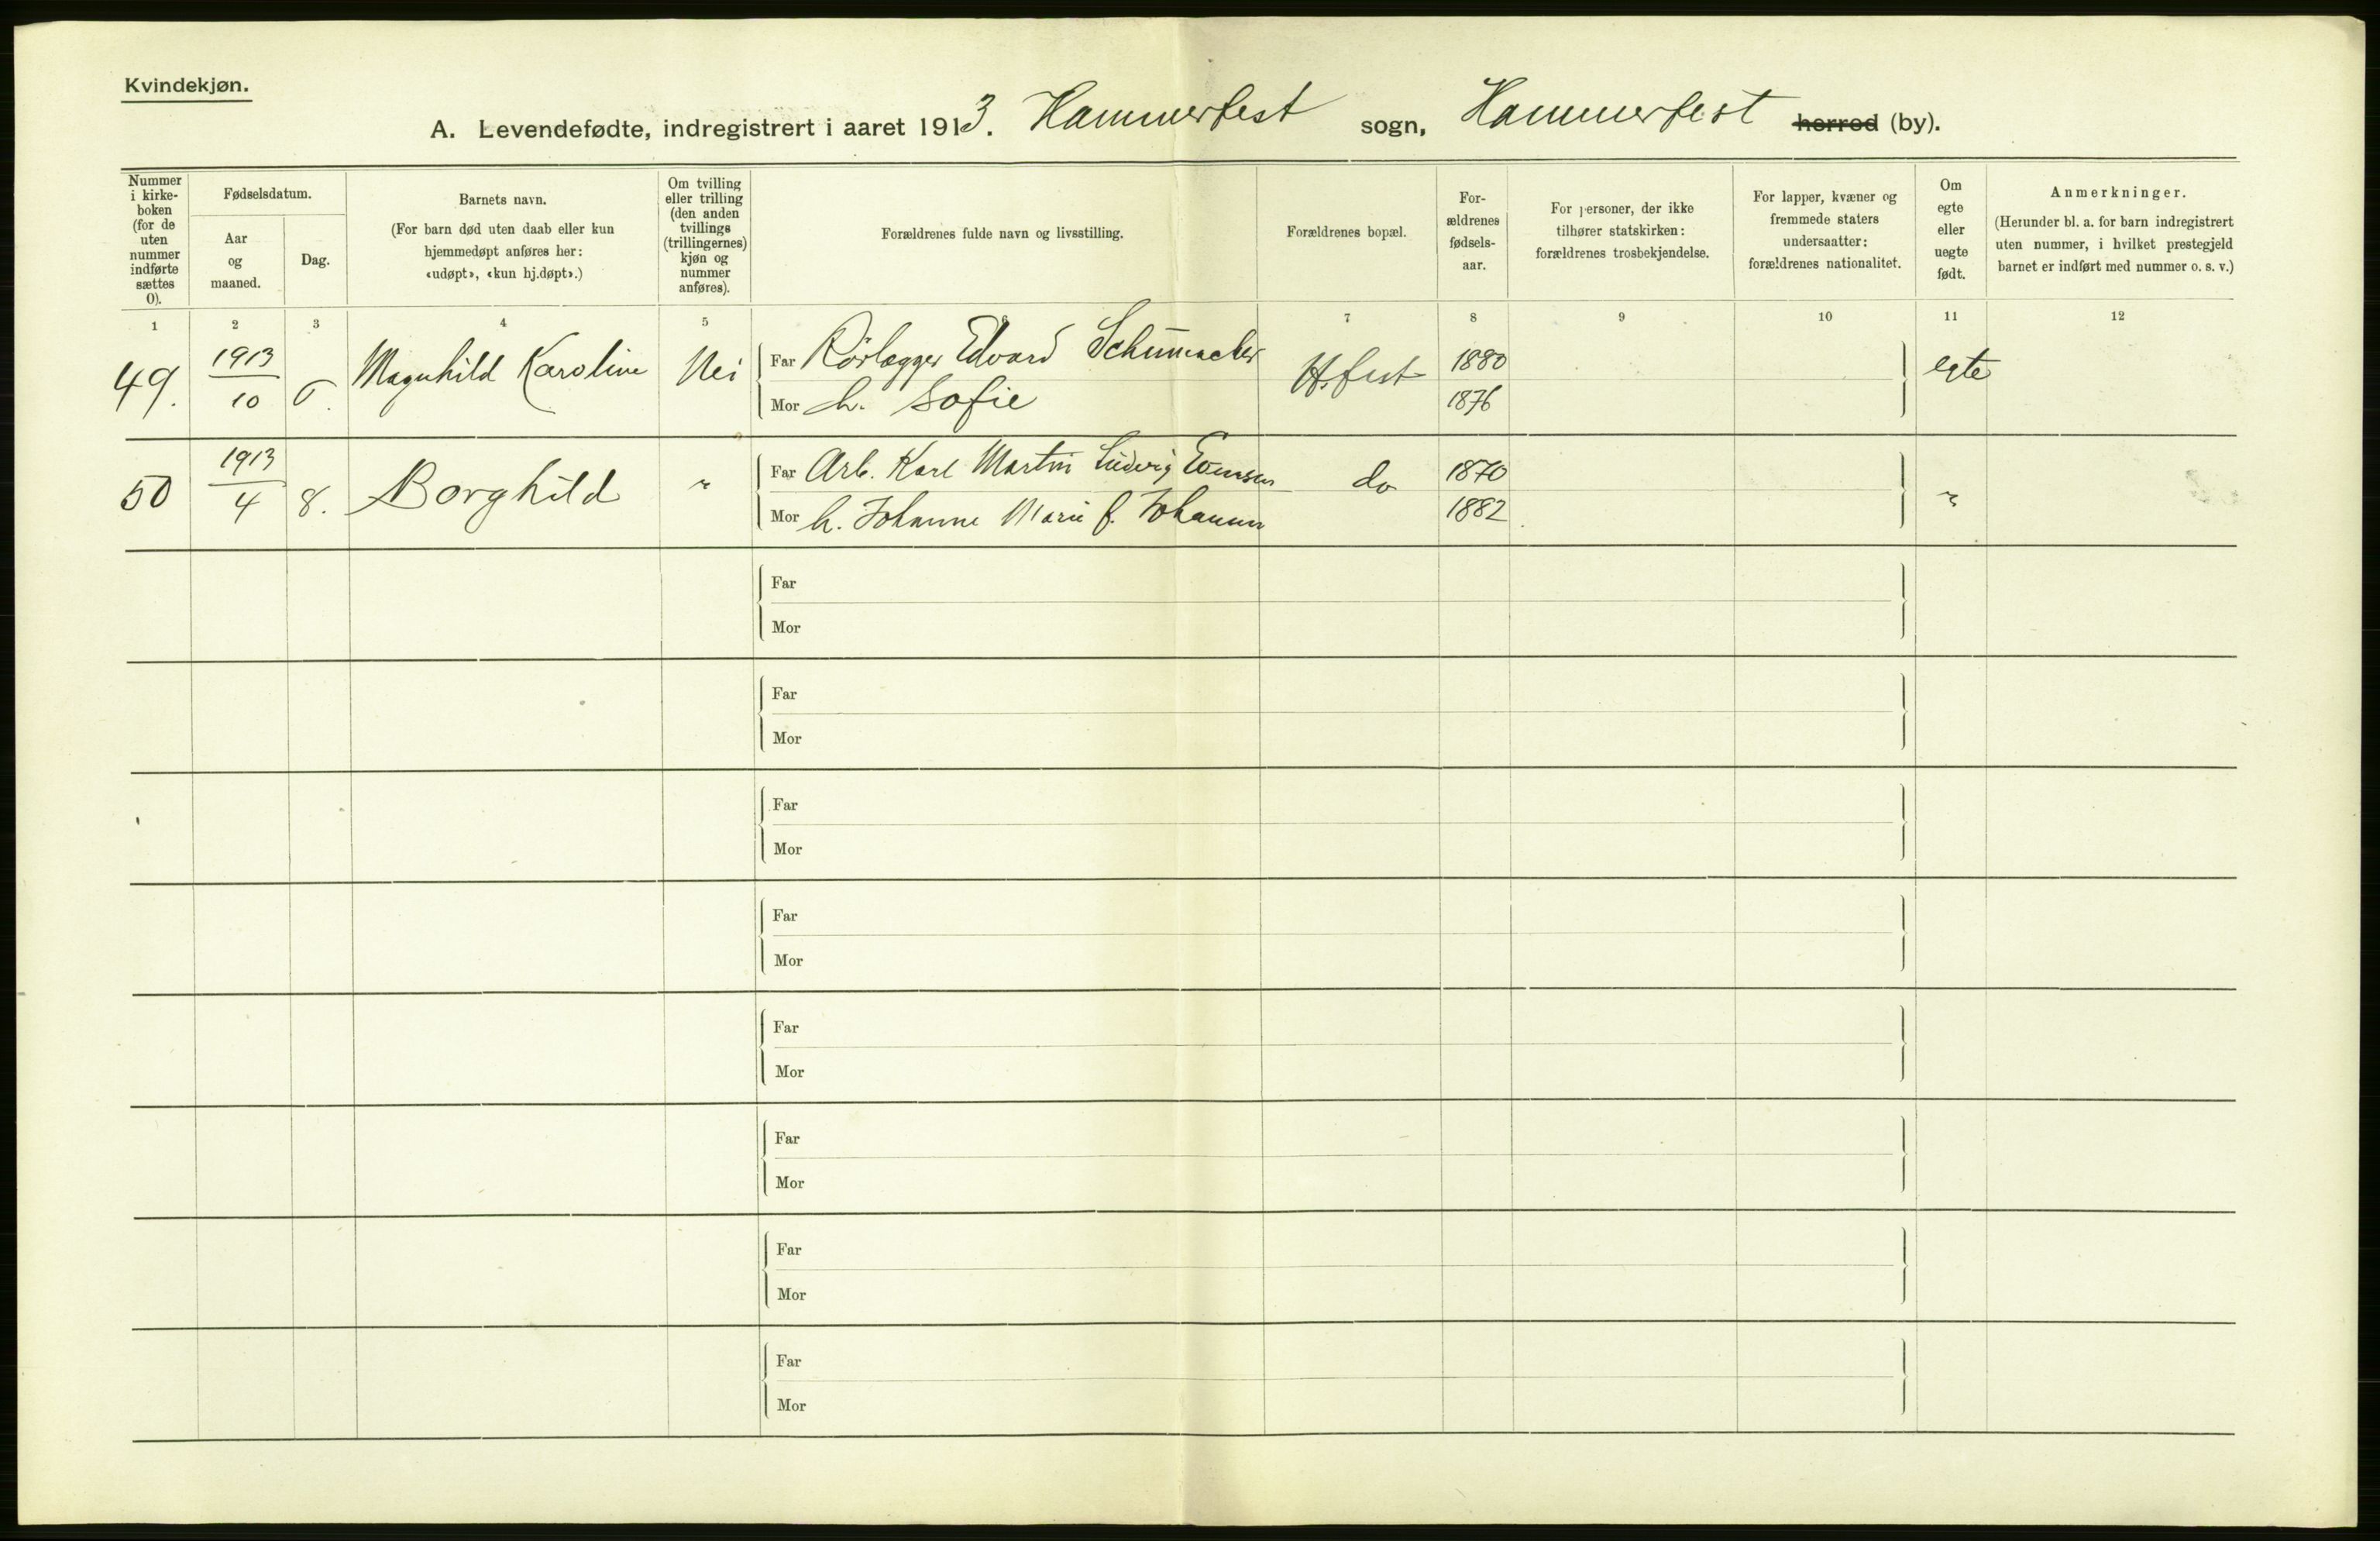 Kvindekjøn.
A. Levendefødte, indregistrert i aaret 1913. Hammerfest sogn, Hammerfest herred (by).
Nummer i kirke-boken (for de uten nummer indførte sættes 0).
Fødselsdatum.
Aar og maaned.
Dag.
Barnets navn.
(For barn død uten daab eller kun hjemmedøpt anføres her: «udøpt», «kun hj.døpt».)
Om tvilling eller trilling (den anden tvillings (trillingernes) kjøn og nummer anføres).
Forældrenes fulde navn og livsstilling.
Forældrenes bopæl.
For-ældrenes fødsels-aar.
For personer, der ikke tilhører statskirken: forældrenes trosbekjendelse.
For lapper, kvæner og fremmede staters undersaatter: forældrenes nationalitet.
Om egte eller uegte født.
Anmerkninger.
(Herunder bl. a. for barn indregistrert uten nummer, i hvilket prestegjeld barnet er indført med nummer o. s. v.)
1 2 3 4 5 6 7 8 9 10 11 12
49. 1913 10 Magnhild Karoline Nei Far Rörlægger Edvard Schumacher H.fest 1880 egte
Mor h. Sofie 1876
50 1913 4 8. Borghild " Far Arb. Karl Martin Ludvig do 1870 "
Mor h. Johanne Marie f. 1882
Far
Mor
Far
Mor
Far
Mor
Far
Mor
Far
Mor
Far
Mor
Far
Mor
Far
Mor